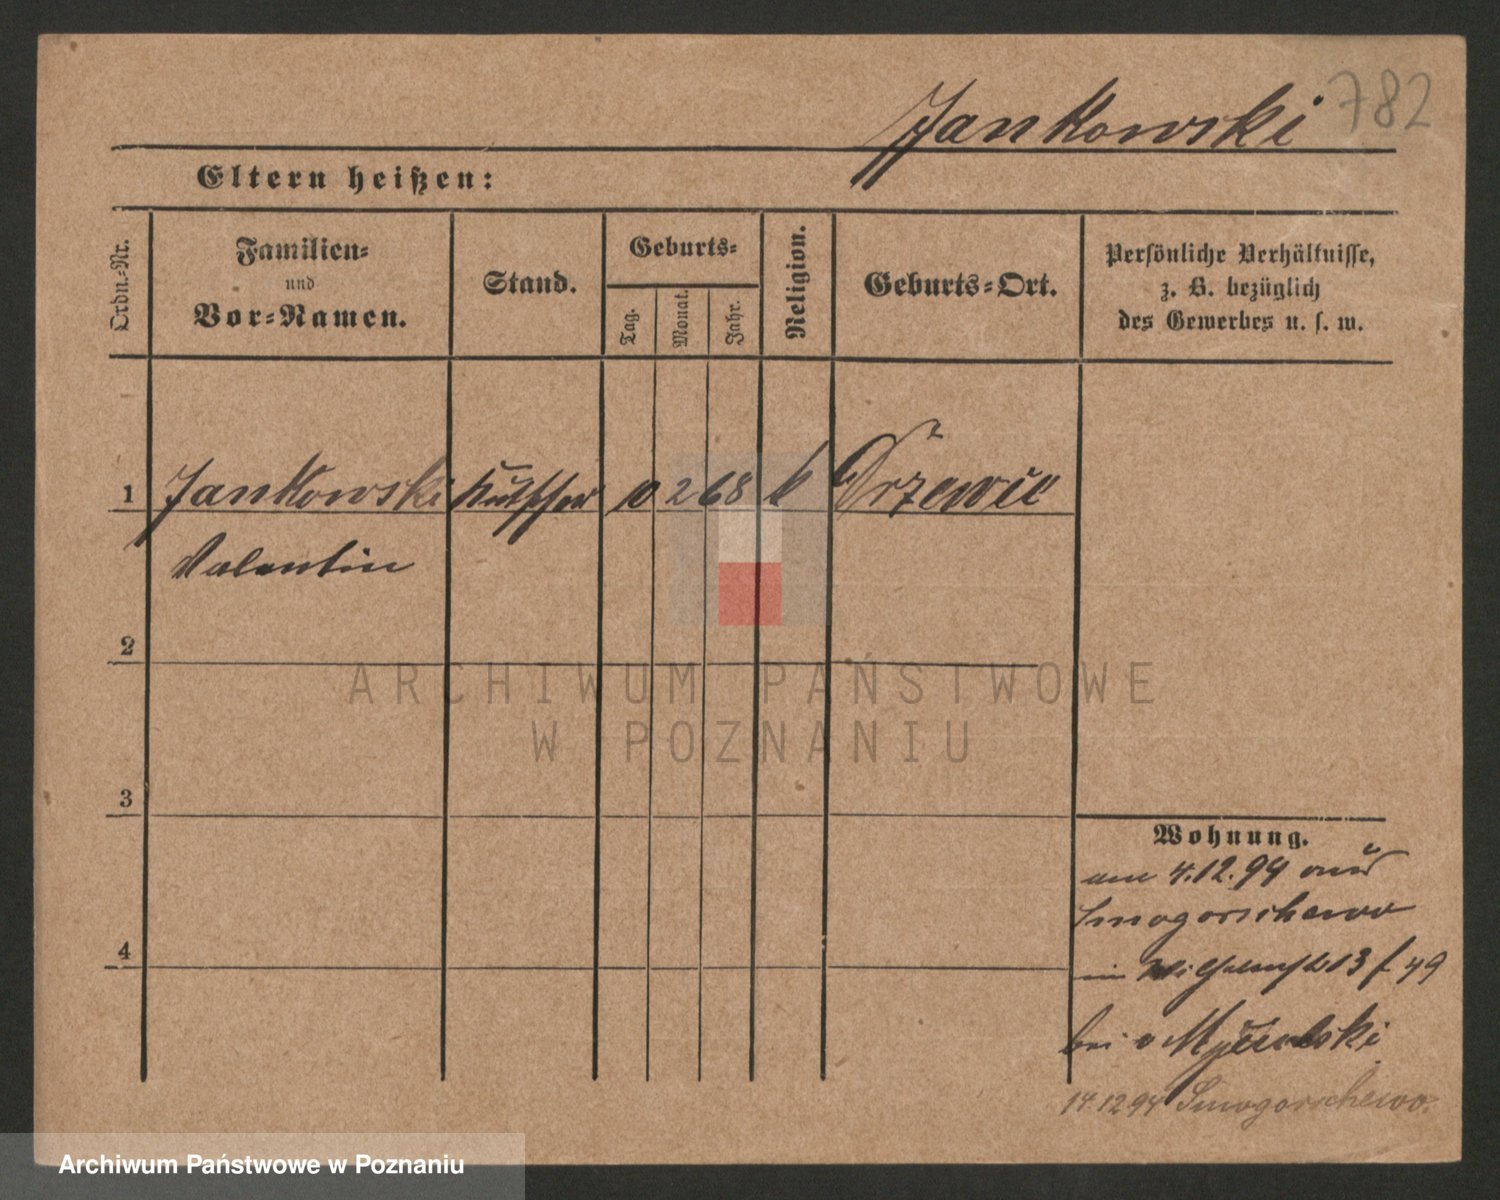 782
Jankowski
Eltern heißen:
Ordn.-Nr.
Familien-
und
Vor-Namen.
Stand.
Geburts-
Tag.
Monat.
Jahr.
Religion.
Geburts-Ort.
Persönliche Verhältnisse,
z. B. bezüglich
des Gewerbes u. s. w.
1 Jankowski Kutscher 10 2 68 k
Valentin
2
3
4
Wohnung.
am 4.12.94 aus
Smogorschewo
in 13 / 49
bei v
14.12.94 Smogorschewo.
ARCHIWUM PAŃSTWOWE
W POZNANIU
Archiwum Państwowe w Poznaniu